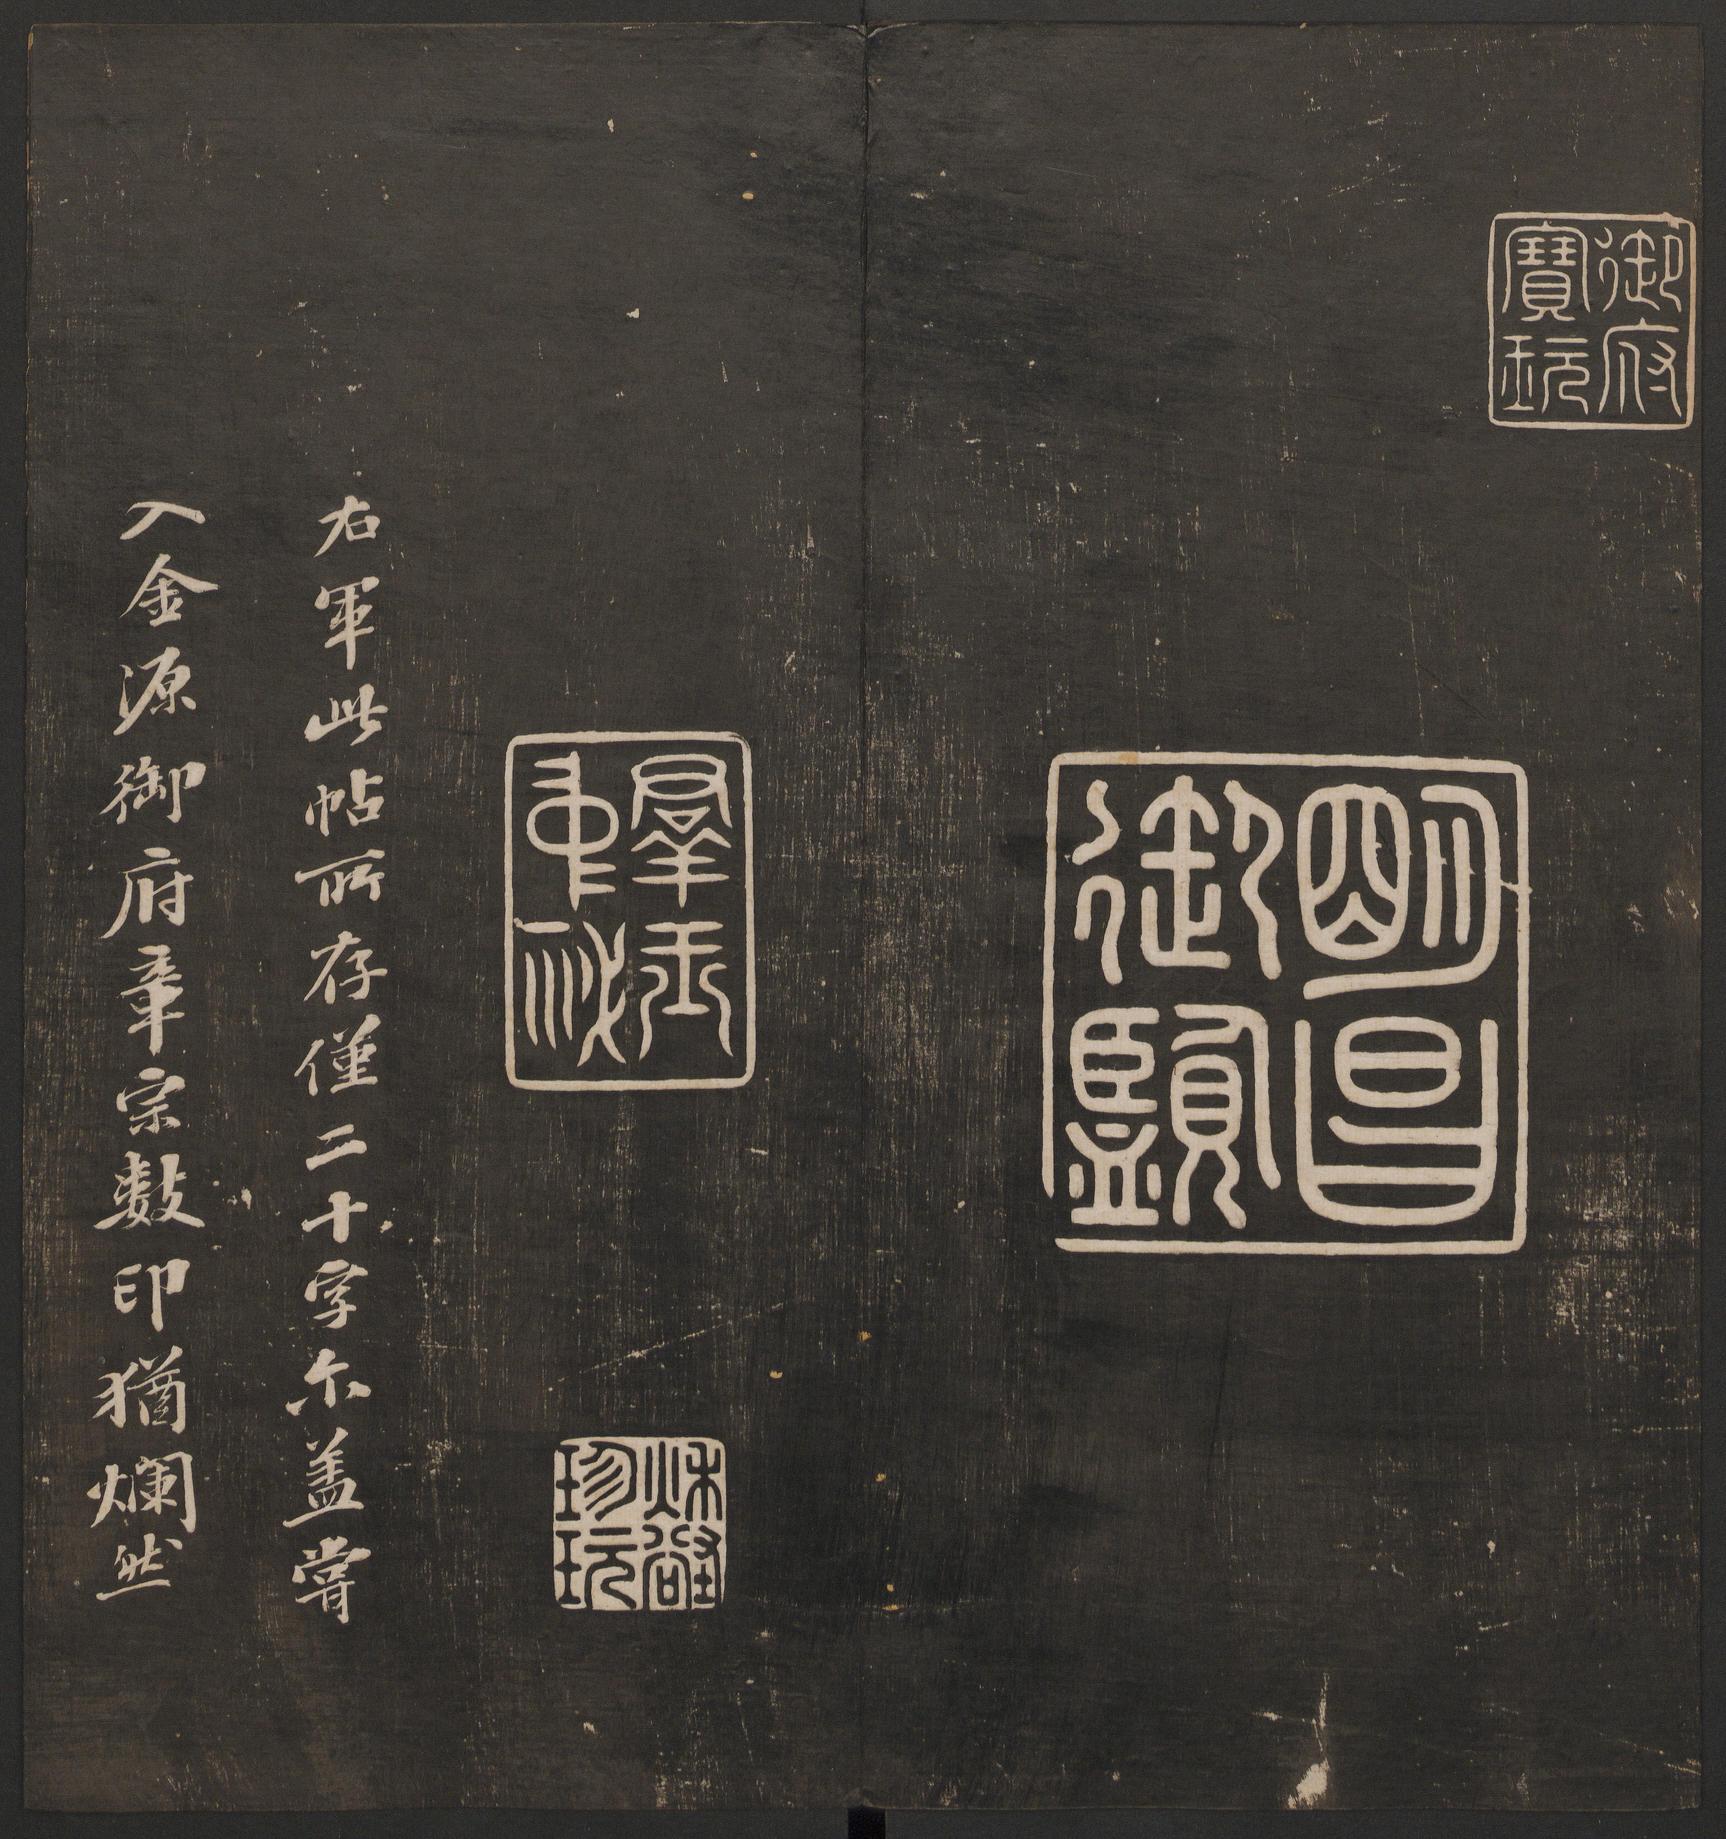 御府
寶玩
明昌
御覽
羣玉
中秘
秋壑
珍玩
右軍此帖所存僅二十字尔盖嘗
入金源御府章宗數印猶爛然